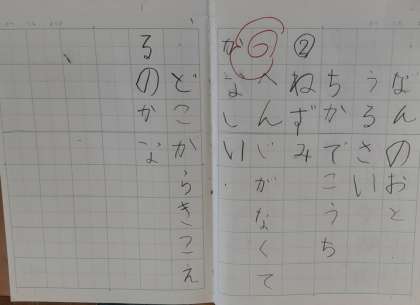 なんのおと
うろさい
ちかでこうち
②ねずみ
へんじがなくて
がなしい.
どこからきこえ
るのかな